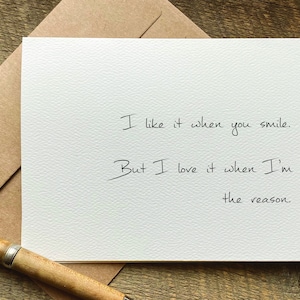 I like it when you smile.
But I love it when I'm
the reason.